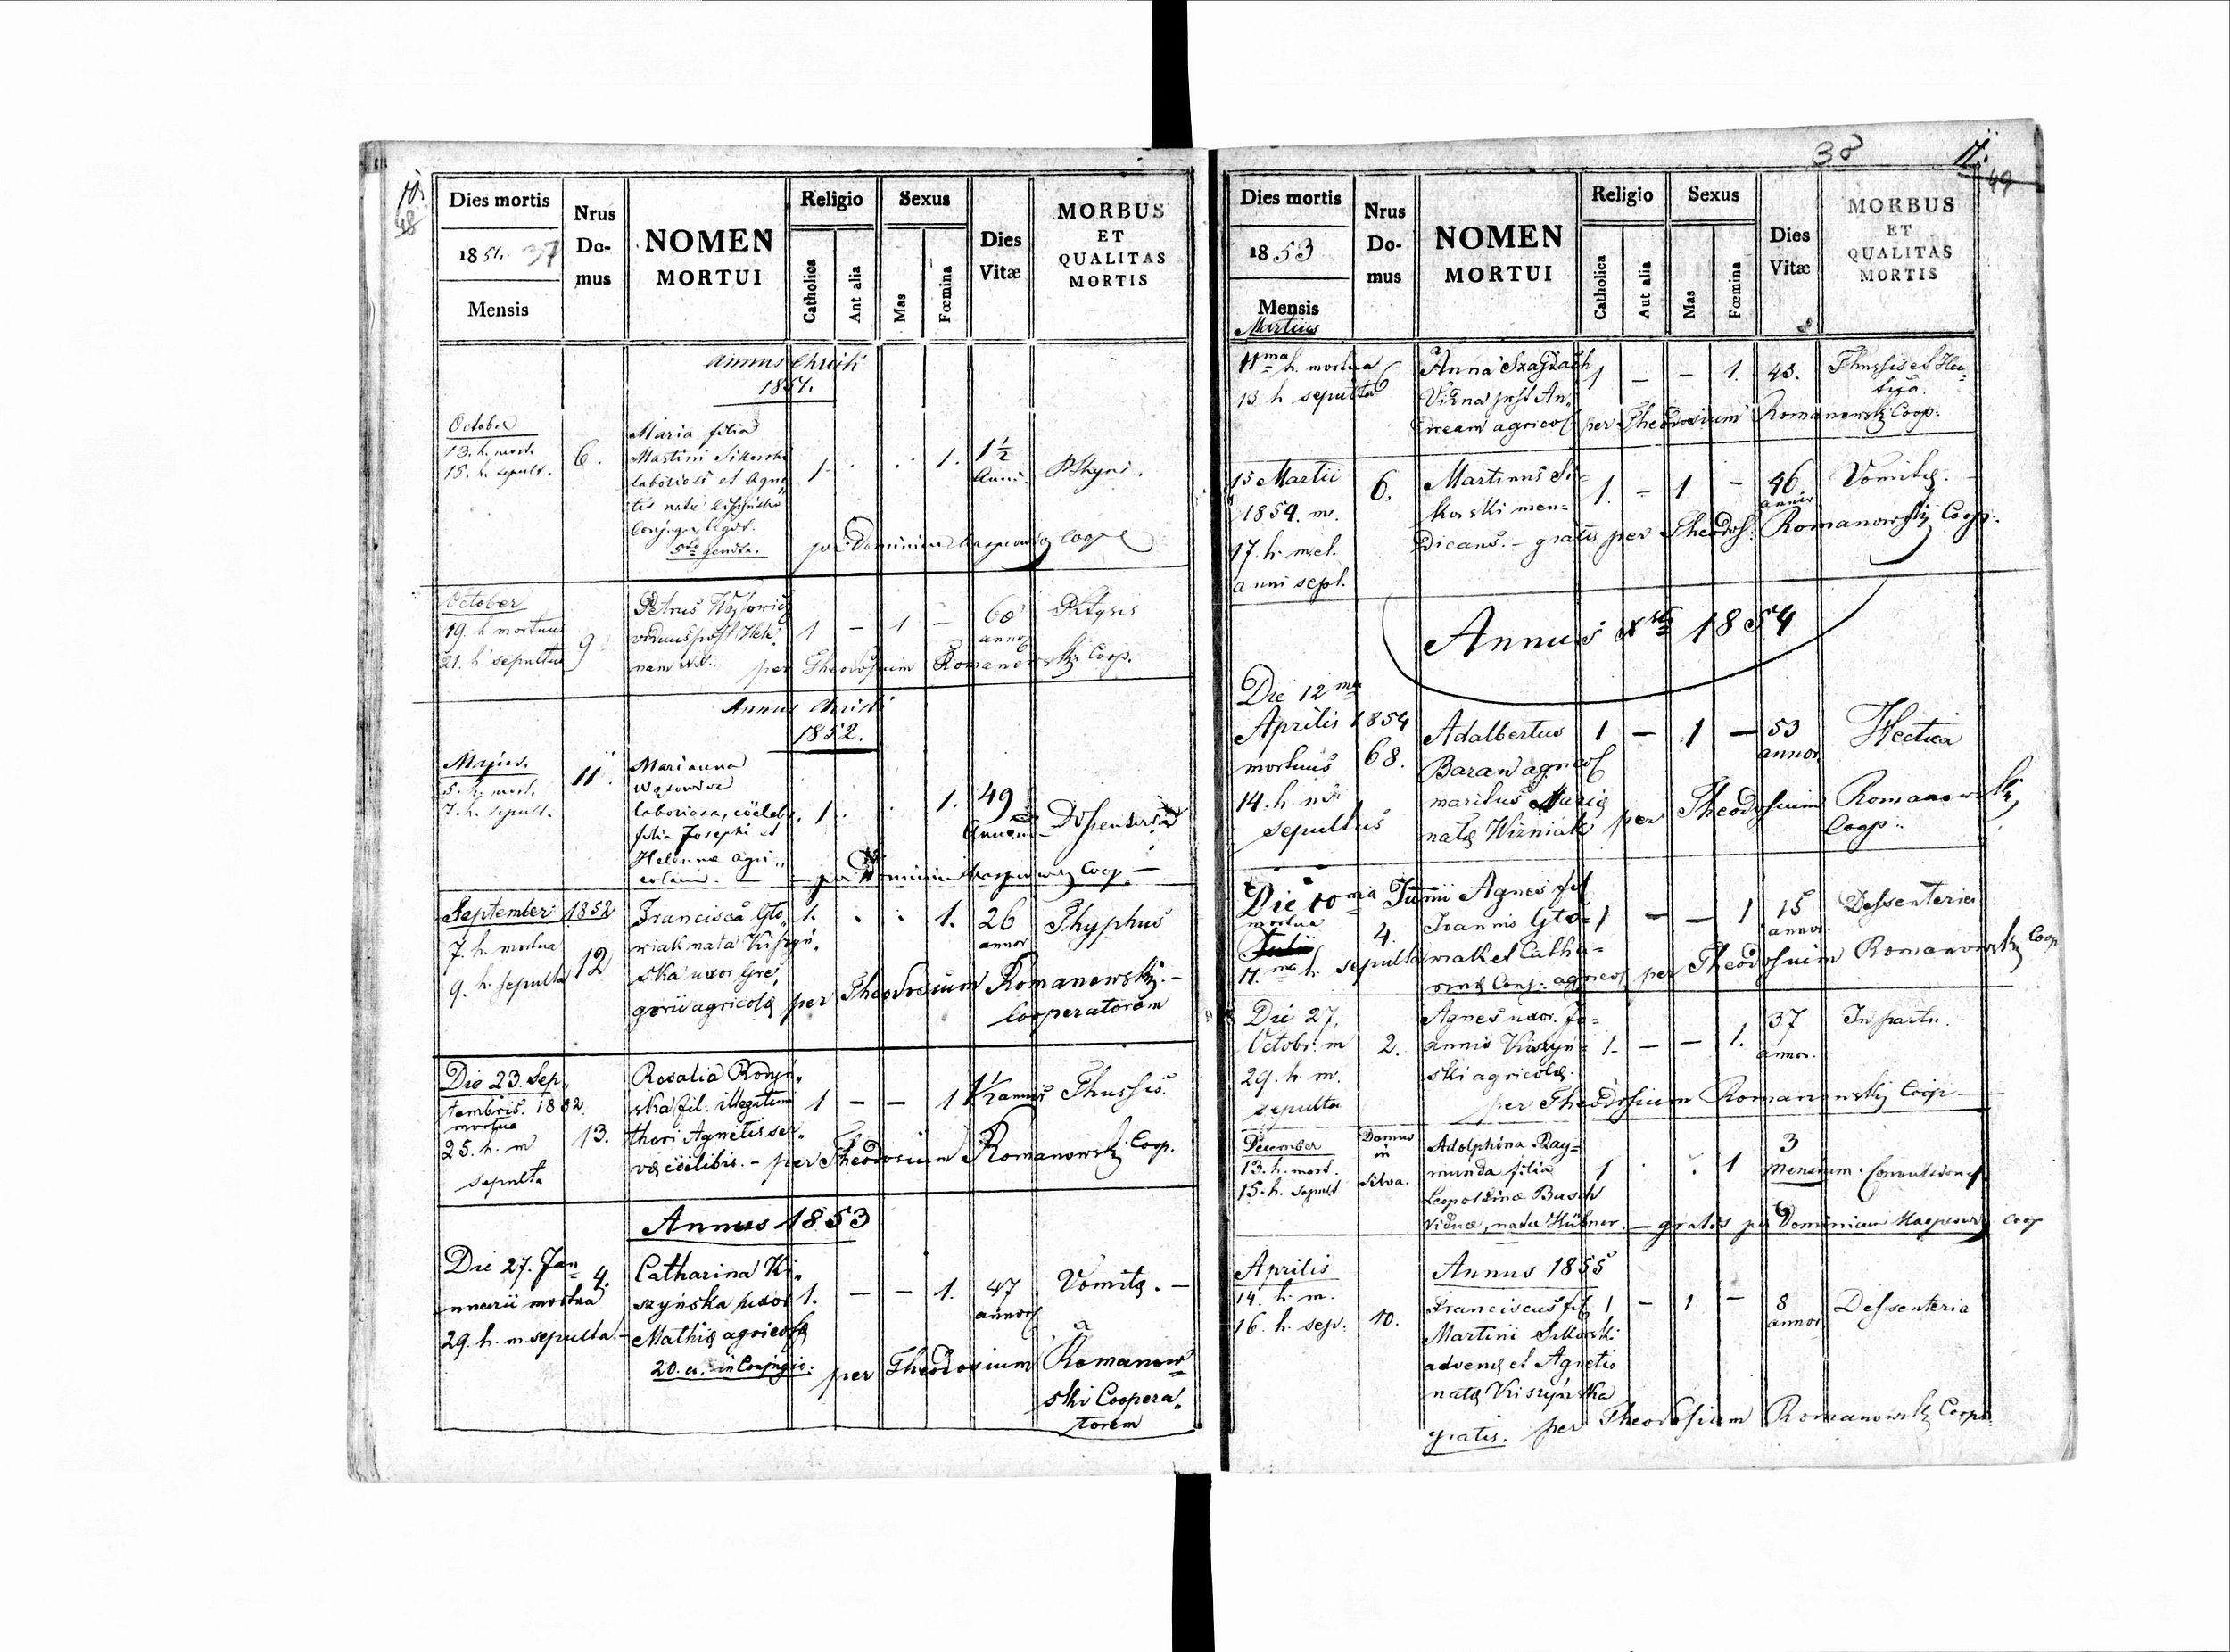 10.
48
Dies mortis
1851. 37
Mensis
Nrus
Do-
mus
NOMEN
MORTUI
Religio
Catholica
Aut alia
Sexus
Mas
Fœmina
Dies
Vitæ
MORBUS
ET
QUALITAS
MORTIS
Annus Christi
1851.
October
13. h. mort.
15. h. sepult.
6.
Maria filia
Martini Sikorski
laboriosi et Agne
tis nata
Conj.
1. . . 1.
1 1/2
Anni.
per Dominicum Coop
October
19. h mortuus
21. h. sepultus
9
Petrus
viduus post Hele
nam N.N. per Theodosium Romanowski Coop.
1 — 1 —
60
annor
Annus Christi
1852.
Majus.
5. h. mort.
7. h. sepult.
11.
Marianna
laboriosa, cölebs.
filia Josephi et
Helenæ agri„
colarum. — per Dominicum Coop. —
1. . . 1.
49
Annor
September 1852
7. h. mortua
9. h. sepulta
12
Francisca Gło„
wiak nata Kiszyń.
ska uxor Gre„
gorii agricolę per Theodosium Romanowski. —
Cooperatorem
1. . . 1.
26
annor
Thyphus
Die 23. Sep„
tembris. 1852.
mortua
25. h. m
sepulta
13.
Rosalia
ska fil: illegitimi
thori Agnetis ser„
vę cölibis. — per Theodosium Romanowski Coop.
1 — — 1
1/2 annis
Thussis.
Annus 1853
Die 27. Jan
nuarii mortua
29. h. m. sepulta. —
4.
Catharina Ki„
szyńska uxor
Mathię agricolę
20. a. in Conjugio.
1. — — 1.
47
annor
Vomitę. —
per Theodosium Romanow
ski Coopera„
torem
38
11.
49
Dies mortis
1853
Mensis
Martius
Nrus
Do-
mus
NOMEN
MORTUI
Religio
Catholica
Aut alia
Sexus
Mas
Fœmina
Dies
Vitæ
MORBUS
ET
QUALITAS
MORTIS
11ma h. mortua
13. h sepulta
6
Anna
Vidua post An„
dream agricol per Theodosium Romanowski Coop:
1 — — 1.
43.
Thussis et Hec=
tica.
15 Martii
1854. m.
17. h. m. et.
anni sepl.
6.
Martinus Si=
korski men=
dicans. — gratis per Theodos: Romanowski Coop:
1. — 1 —
46
annor
Vomitę. —
Annus Xsti 1854
Die 12 ma
Aprilis 1854
mortuus
14. h. m
sepultus
68.
Adalbertus
Baran agricol
maritus Marię
natę Wizniak per Theodosium Romanowski
Coop:
1 — 1 —
53
annor.
Hectica
Die 10ma Junii
mortua
11. ma h. sepulta
4.
Agnes fil
Joannis Gło=
wiak et Catha=
rinę Conj: agricol per Theodosium Romanowski Coop
1 — — 1
15
annor.
Dessenteria
Die 27.
Octobr. m
29. h m.
sepulta
2.
Agnes uxor. Jo=
annis Kiszyń=
ski agricolę.
1. — — 1.
37
annor.
In partu.
per Theodosium Romanowski Coop —
December
13. h. mort.
15. h. sepult
Domus
in
silva.
Adolphina Ray=
munda filia
Leopoldinæ Basch
Viduæ, natæ Hübner. — gratis per Dominicum Coop
1 . . 1
3
Mensium.
Aprilis
14. h. m.
16. h. sep:
10.
Annus 1855
Franciscus fil
Martini Sikorski
advenę et Agnetis
natę Kiszyńska
gratis. per Theodosium Romanowski Coop:
1 — 1 —
8
annor
Dessenteria